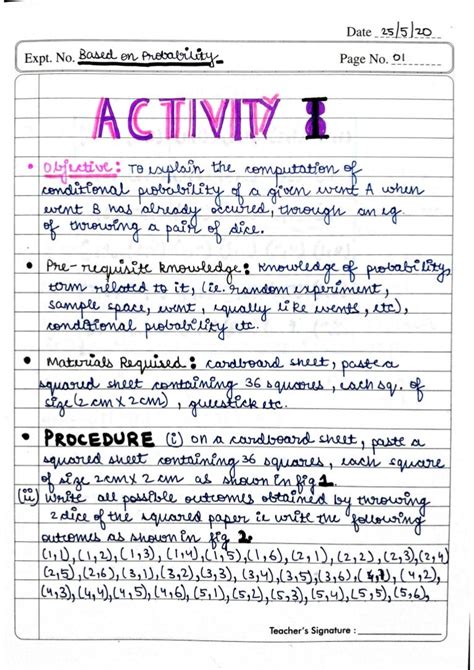 Date 25/5/20
Expt. No. Based on Probability
Page No. 01
ACTIVITY 8
• Objective: To explain the computation of
conditional probability of a given event A when
event B has already occured, through an eg.
of throwing a pair of dice.
• Pre-requisite knowledge: Knowledge of probability,
term related to it, (ie. random experiment,
sample space, event, equally like events, etc),
conditional probability etc.
• Materials Required: cardboard sheet, paste a
squared sheet containing 36 squares, each sq. of
size (2cm X 2cm), gluestick etc.
• PROCEDURE (i) on a cardboard sheet, paste a
squared sheet containing 36 squares, each square
of size 2cm X 2cm as shown in fig 1.
(ii) Write all possible outcomes obtained by throwing
2 dice of the squared paper ie write the following
outcomes as shown in fig 2.
(1,1),(1,2),(1,3),(1,4),(1,5),(1,6),(2,1),(2,2),(2,3),(2,4)
(2,5),(2,6),(3,1),(3,2),(3,3),(3,4),(3,5),(3,6),(4,1),(4,2),
(4,3),(4,4),(4,5),(4,6),(5,1),(5,2),(5,3),(5,4),(5,5),(5,6),
Teacher's Signature :